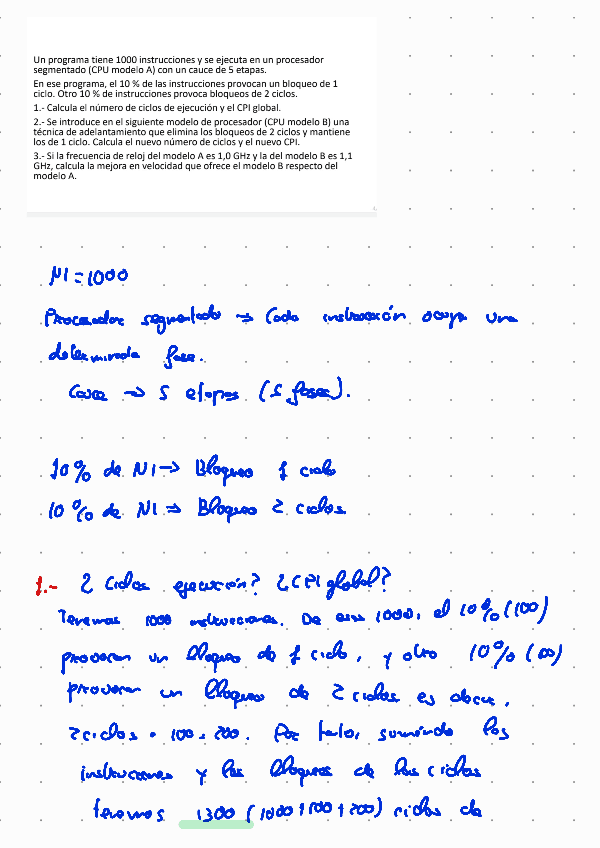 Un programa tiene 1000 instrucciones y se ejecuta en un procesador
segmentado (CPU modelo A) con un cauce de 5 etapas.
En ese programa, el 10 % de las instrucciones provocan un bloqueo de 1
ciclo. Otro 10 % de instrucciones provoca bloqueos de 2 ciclos.
1.- Calcula el número de ciclos de ejecución y el CPI global.
2.- Se introduce en el siguiente modelo de procesador (CPU modelo B) una
técnica de adelantamiento que elimina los bloqueos de 2 ciclos y mantiene
los de 1 ciclo. Calcula el nuevo número de ciclos y el nuevo CPI.
3.- Si la frecuencia de reloj del modelo A es 1,0 GHz y la del modelo B es 1,1
GHz, calcula la mejora en velocidad que ofrece el modelo B respecto del
modelo A.
NI = 1000
Procesador segmentado → Cada instrucción ocupa una
determinada fase.
Cauce → 5 etapas (5 fases).
10% de NI → Bloqueo 1 ciclo
10% de NI → Bloqueo 2 ciclos
1.- ¿Ciclos ejecución? ¿CPI global?
Tenemos 1000 instrucciones. De esas 1000, el 10% (100)
provocan un bloqueo de 1 ciclo, y otro 10% (100)
provocan un bloqueo de 2 ciclos es decir,
2 ciclos · 100 = 200. Por tanto, sumando las
instrucciones y los bloqueos de los ciclos
tenemos 1300 (1000+100+200) ciclos de